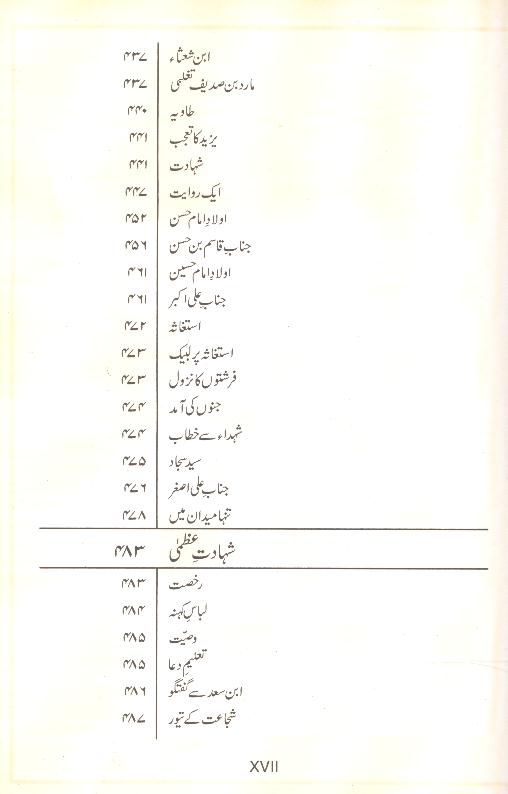 ابن شعثاء ۴۳۷
مارد بن صدیف تغلبی ۴۳۷
طاویہ ۴۴۰
یزید کا تعجب ۴۴۱
شہادت ۴۴۱
ایک روایت ۴۴۷
اولادِ امام حسن ۴۵۲
جنابِ قاسم بن حسن ۴۵۶
اولادِ امام حسین ۴۶۱
جنابِ علی اکبر ۴۶۱
استغاثہ ۴۷۲
استغاثہ پر لبیک ۴۷۳
فرشتوں کا نزول ۴۷۳
جنوں کی آمد ۴۷۴
شہداء سے خطاب ۴۷۴
سید سجاد ۴۷۵
جنابِ علی اصغر ۴۷۶
تنہا میدان میں ۴۷۸
شہادتِ عظمیٰ ۴۸۳
رخصت ۴۸۳
لباسِ کہنہ ۴۸۴
وصیّت ۴۸۵
تعلیمِ دعا ۴۸۵
ابن سعد سے گفتگو ۴۸۶
شجاعت کے تیور ۴۸۷
XVII